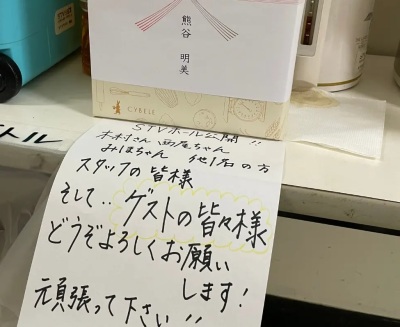 熊谷
明美
CYBELE
STVホール公開!!
木村さん 西尾ちゃん
みほちゃん 他1名の方
スタッフの皆様
そして‥ ゲストの皆々様
どうぞよろしくお願い
します!
頑張って下さい!!
トル